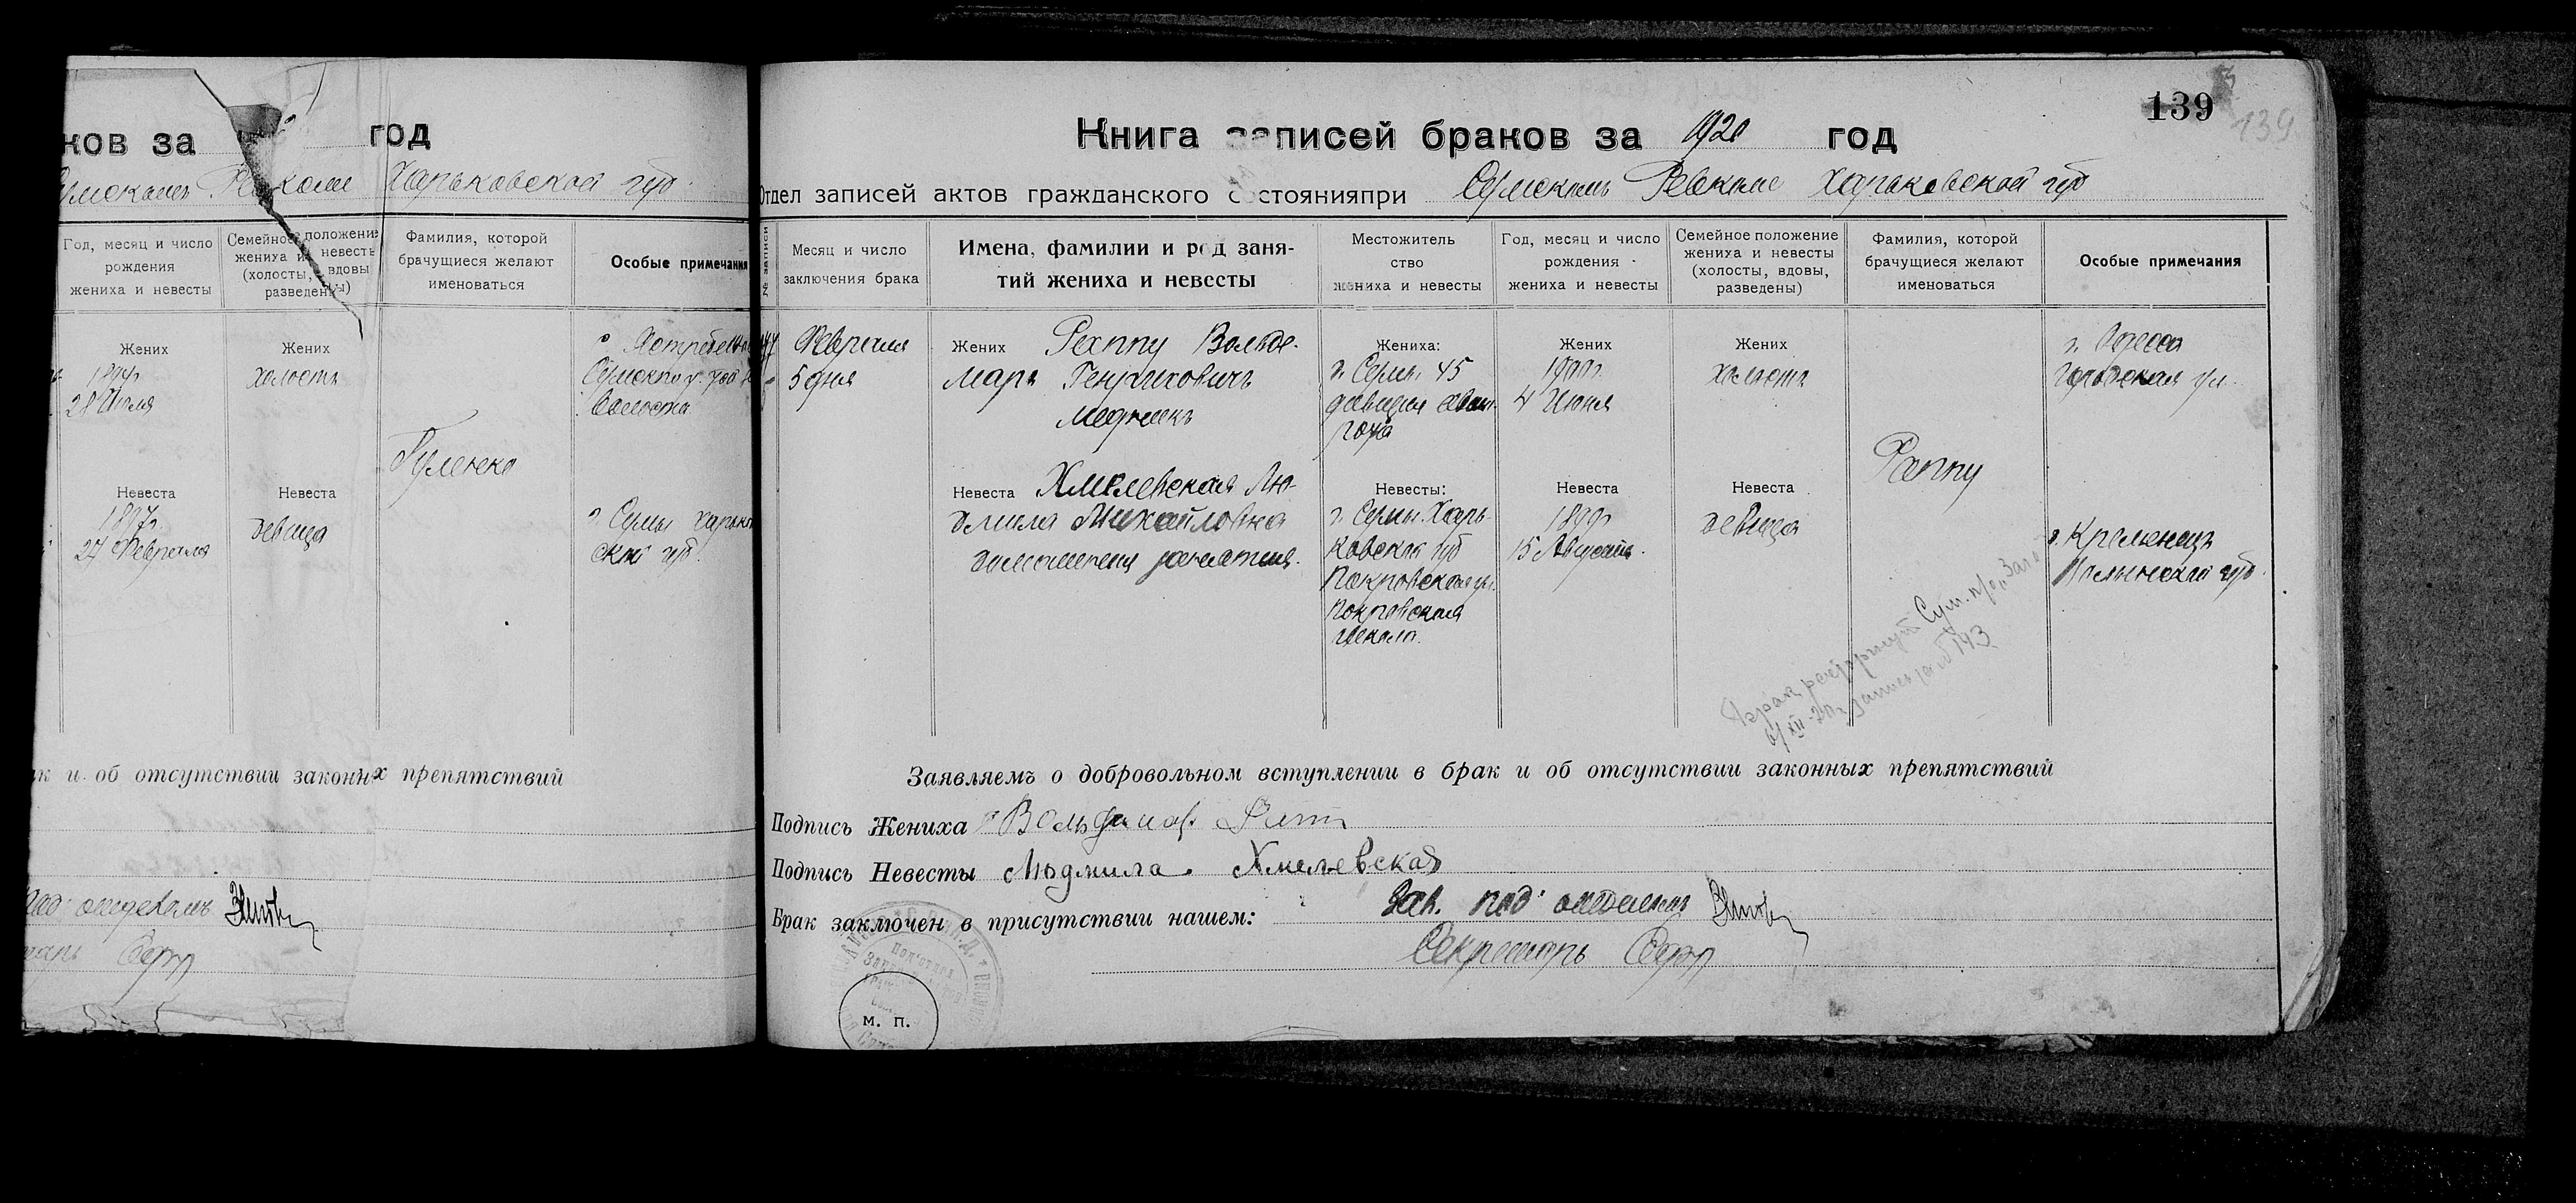 ков за
год
Харьковской губ.
Год, месяц и число
рождения
жениха и невесты
Семейное положение
жениха и невесты
(холосты, вдовы
разведены)
Фамилия, которой
брачущиеся желают
именоваться
Особые примечания
Жених
1894г
28 Июля
Жених
холостъ
волости
Гуленко
Невеста
1897г
27 Февраля
Невеста
девица
г. Сумы
ской губ.
ак и об отсутствии законных препятствий
под отделомъ
139
139
Книга записей браков за 1920 год
Отдел записей актов гражданского состоянияпри Сумскомъ Ревкоме Харьковской губ
№ записи
Месяц и число
заключения брака
Имена, фамилии и род заня-
тий жениха и невесты
Местожитель
ство
жениха и невесты
Год, месяц и число
рождения
жениха и невесты
Семейное положение
жениха и невесты
(холосты, вдовы,
разведены)
Фамилия, которой
брачущиеся желают
именоваться
Особые примечания
Февраля
5 дня
Жених Раппу Вольде-
маръ Генриховичъ
Невеста Хмелевская Лю-
дмила Михайловна
домашнеия занятия.
Жениха:
г. Сумы 45
дивизия
Невесты:
г. Сумы Харь-
ковской губ
Покровская ул.
Покровская
Жених
1900г.
4 Июня
Невеста
1899г
15 Августа.
Жених
холостъ
Невеста
девица
Раппу
г. Одесса
Городская ул.
г. Кременецъ
Волынской губ.
Брак Сум.
6/XII запись за № 143
Заявляемъ о добровольном вступлении в брак и об отсутствии законных препятствий
Подпись Жениха Вольдемар
Подпись Невесты Людмила Хмелевская
Брак заключен в присутствии нашем: Зав. под отделомъ
Секретарь
м. п.